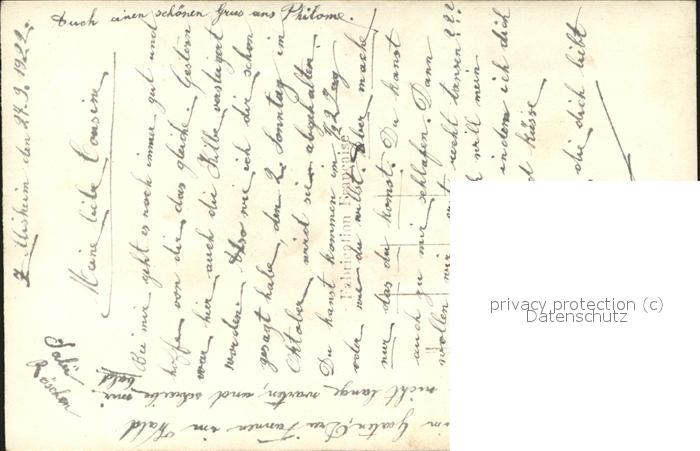 Auch einen schönen Grus ans Philome.
Illsheim den 24.9.1922.
Meine liebe Cousine
Bei mir geht es noch immer gut und
hoffe von dir das gleiche. Gestern
war hier auch die Kilbe versteigert
worden. Also wie ich dir schon
gesagt habe, den 2. Sonntag im
Oktober wird sie abgehalten.
Du kanst kommen im Zug
oder wie du willst. Aber mache
nur das du komst. Du kanst
auch zu mir schlafen. Dann
wollen wir recht tanzen???
will mein
indem ich dich
küsse
die dich liebt
nicht lange warten, und schreibe mir
bald
im Garten, Drei Tannen im Wald
Fabrication Française
privacy protection (c)
Datenschutz